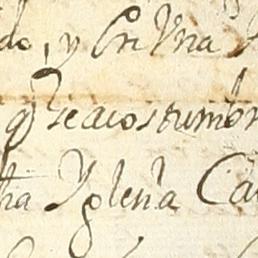 do, y En Vna
q Se acostumbr
ha Yglesia Ca